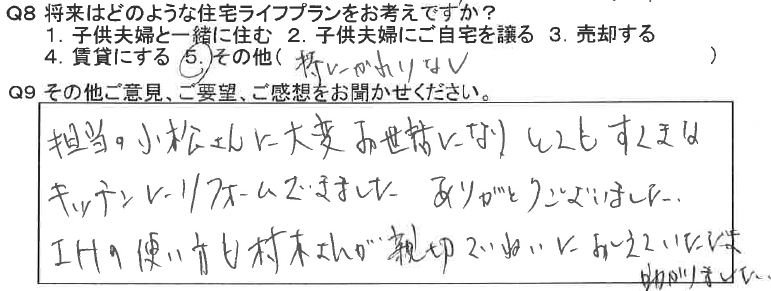 Q8 将来はどのような住宅ライフプランをお考えですか？
1. 子供夫婦と一緒に住む 2. 子供夫婦にご自宅を譲る 3. 売却する
4. 賃貸にする 5. その他( 特に なし )
Q9 その他ご意見、ご要望、ご感想をお聞かせください。
担当の小松さんに大変お世話になり とてもすてきな
キッチンにリフォームできました ありがとうございました.
IHの使い方も村木さんが親切ていねいにおしえていただき
助かりました..